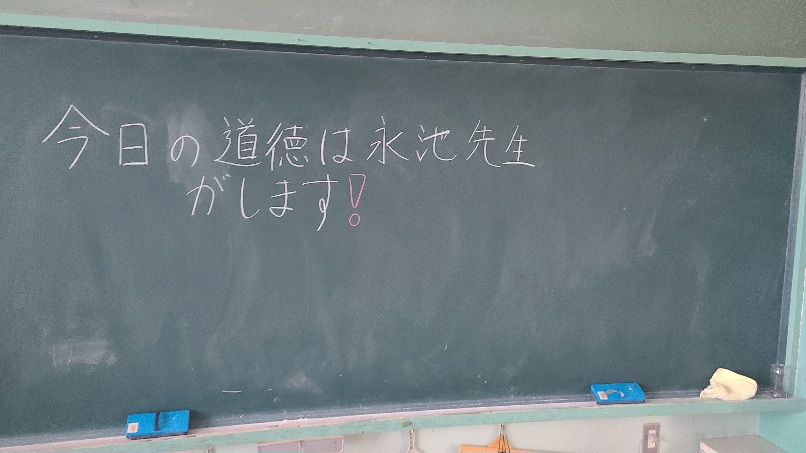 今日の道徳は永池先生
がします!